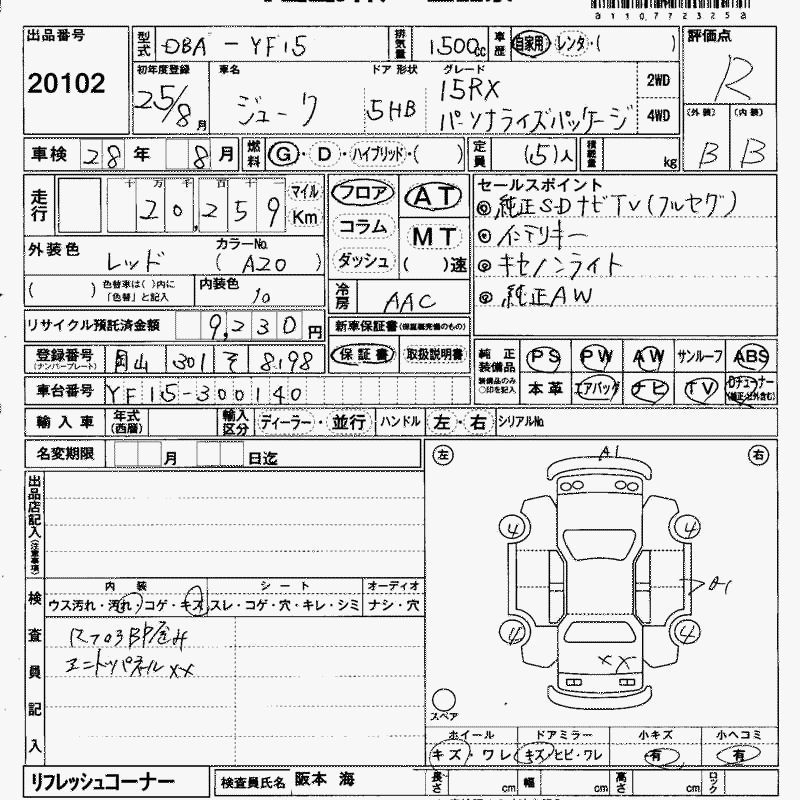 a110773235a
出品番号 20102
型式 DBA - YF15 排気量 1500cc 車歴 自家用・レンタ・( )
評価点 R
初年度登録 25/8月 車名 ジューク ドア 形状 5HB グレード 15RX パーソナライズパッケージ 2WD 4WD
(外装) B (内装) B
車検 28年 8月 燃料 G・D・ハイブリッド・( ) 定員 (5)人 積載量 kg
走行 十万千百十一 20,259 マイル Km
フロア コラム ダッシュ
AT MT ( )速
セールスポイント
◎純正SDナビTV(フルセグ)
◎インテリキー
◎キセノンライト
◎純正AW
外装色 レッド カラーNo. ( A20 )
( ) 色替車は( )内に「色替」と記入 内装色
冷房 AAC
リサイクル預託済金額 9,230円
新車保証書(保証継続完備のもの)
保証書 取扱説明書
登録番号 (ナンバープレート) 岡山 301 8198
純正装備品 PS PW AW サンルーフ ABS
装備品のみ○印を記入 本革 エアバッグ ナビ TV Dチューナー
車台番号 YF15-300140
輸入車 年式(西暦) 輸入区分 ディーラー・並行 ハンドル 左・右 シリアルNo.
名変期限 月 日迄
左 右
A1
4 4
A1
4 4
XX
スペア
出品店記入(注意事項)
検査員記入
内装 シート オーディオ
ウス汚れ・汚れ・コゲ・キズ スレ・コゲ・穴・キレ・シミ ナシ・穴
XX
ホイール ドアミラー 小キズ 小ヘコミ
キズ・ワレ キズ・ヒビ・ワレ 有 有
リフレッシュコーナー 検査員氏名 阪本 海
長さ cm 幅 cm 高さ cm ロック